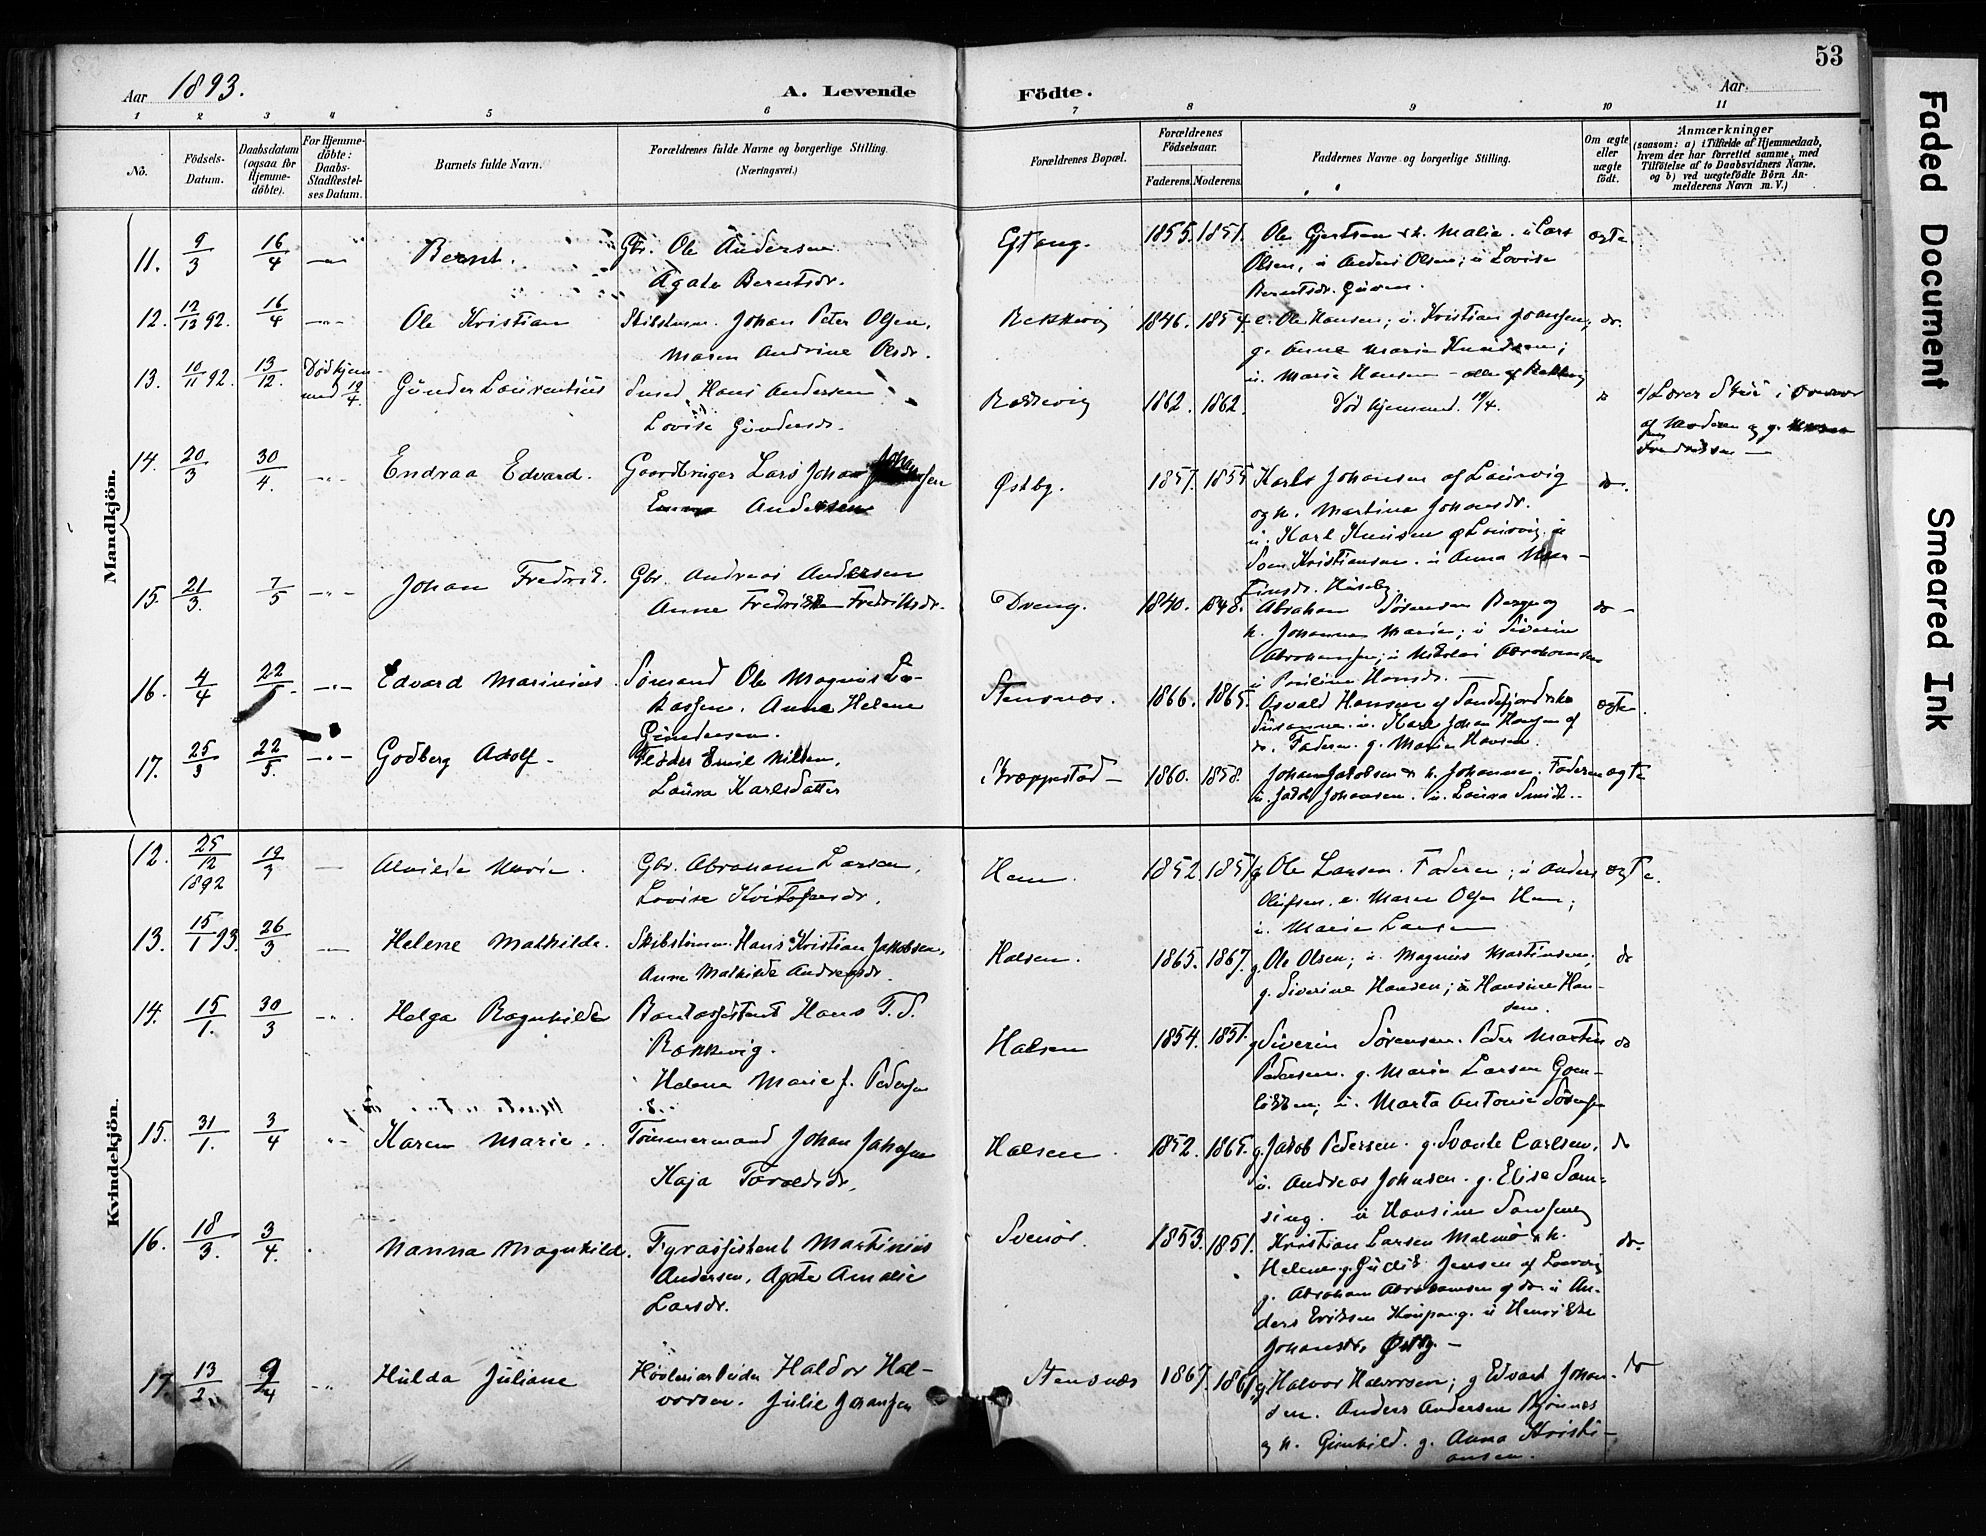 53
Aar 1893.
A. Levende
Födte.
Aar
1 2 3 4 5 6 7 8 9 10 11
Nö.
Födsels-
Datum.
Daabsdatum
(ogsaa for
Hjemme-
döbte).
For Hjemme-
döbte:
Daabs-
Stadfæstel-
ses Datum.
Barnets fulde Navn.
Forældrenes fulde Navne og borgerlige Stilling.
(Næringsvei.)
Forældrenes Bopæl.
Forældrenes
Födselsaar.
Faderens. Moderens.
Faddernes Navne og borgerlige Stilling.
Om ægte
eller
uægte
födt.
Anmærkninger
(saasom: a) i Tilfælde af Hjemmedaab,
hvem der har forrettet samme, med
Tilföielse af to Daabsvidners Navne.
og b) ved uægtefödte Börn An-
melderens Navn m. V.)
Mandkjön.
11. 9/3 16/4 Bernt. Gbr. Ole Andersen
Agate Berntsdr.
Eftang. 1855. 1851. Ole Gjertsen & h. Malia. u Lars ægte
Olsen, u Anders Olsen; u Lovise
Berntsdr.
12. 12/12 92. 16/4 Ole Kristian Johan Peter Olsen,
Maren Andrine Olsdr.
Rekkevig 1846. 1854. e. Ole Hansen; u. Kristian Johansen, do.
g. Anne Maria Knudsen;
u. Marie Hansen - alle af Rekkevig
13. 10/11 92. 13/12. Död hjem-
med 19/4. Günder Laurentius Smed Hans Andersen
Lovise Gundersdr.
Rekkevig 1862. 1862. Död hjemmed. 19/4. do a/ Lærer i
af Moderen og g.
Fredriksen
14. 20/3 30/4. Endraa Edvard. Gaardbruger Lars Johan Johansen
Emma Andersen
Østby. 1857. 1855 Karl Johansen af Laurvig do.
og h. Martina Johansdr.
u. Karl Knudsen af Laurvig, u
Sven Kristiansen. u Anna
15. 21/3. 7/5 Johan Fredrik. Gbr. Andreas Andersen
Anne Fredriksdr.
Dveng. 1840. 1848. Abraham Sörensen Berge og do
h. Johanne Marie; u Severin
Abrahamsen; u Nikolai Abrahamsen
u Pauline Hansdr.
16. 4/4 22/5. Edvard Marinius. Sömand Ole Magnus La-
rassen. Anne Helene
Gundersen.
Stensnæs. 1866. 1865. Osvald Hansen af Sandefjord & h. ægte.
Susanne. u. Karl Johan Hansen af
do. Faderen. g. Marie Hansen.
17. 25/3 22/5. Godberg Adolf. Emil Nilsen,
Laura Karlsdatter
Skræppestad 1860. 1858. Johan Jakobsen & h. Johanne. Faderen ægte
u. Jakob Johansen. u. Laura Smidt.
Kvindekjön.
12. 25/12 1892 19/3 Alvilda Marie. Gbr. Abraham Larsen,
Lovise Kristofersdr.
Hem. 1852 1851 g Ole Larsen. Faderen; u Anders ægte.
Olufsen. e. Maren Olsen Hem;
u. Maria Larsen
13. 15/1 93. 26/3. Helene Mathilde. Skibstömm. Hans Kristian Jakobsen,
Anne Mathilde Andreasdr.
Halsen. 1865. 1867. g. Ole Olsen; u. Magnus Martinsen; do
g. Siverine Hansen; u Hansine Han-
sen.
14. 15/1. 30/3 Helga Ragnhilde Bankassistent Hans T. S.
Rekkevig.
Helene Marie f. Pedersen
Halsen 1854. 1851. g Siverin Sörensen. Peder Martin do
Pedersen. g. Marie Larsen Gron-
lökken; u. Marta Antonie Sörensen
15. 31/1. 3/4 Karen Marie. Tömmermand Johan Jakobsen
Kaja Taraldsdr.
Halsen. 1852. 1865. g. Jakob Pedersen. g. Svante Carlsen, do
u. Andreas Johnsen. g. Elise Sam-
sing. u Hansine Samsing
16. 18/3. 3/4. Nanna Magnhild. Fyrassistent Martinius
Andersen, Agate Amalie
Larsdr.
Svenör. 1853. 1851. Kristian Larsen Malmö & h. do.
Helene. g. Gudik Jensen af Laurvig
g. Abraham Abrahamsen af do. u An-
ders Eriksen Kaupang. u Henrikke
Johansdr. Østby.
17. 13/2. 9/4 Hulda Juliane Høvleriarbeider Haldor Hal-
vorsen. Julie Johansen
Stensnæs 1867. 1861. g Halvor Halvorsen; g Edvard Johan- do
sen. Anders Andersen Bjönnes
og h. Gunhild. g. Anna Kristi-
ansen.
Faded Document
Smeared Ink